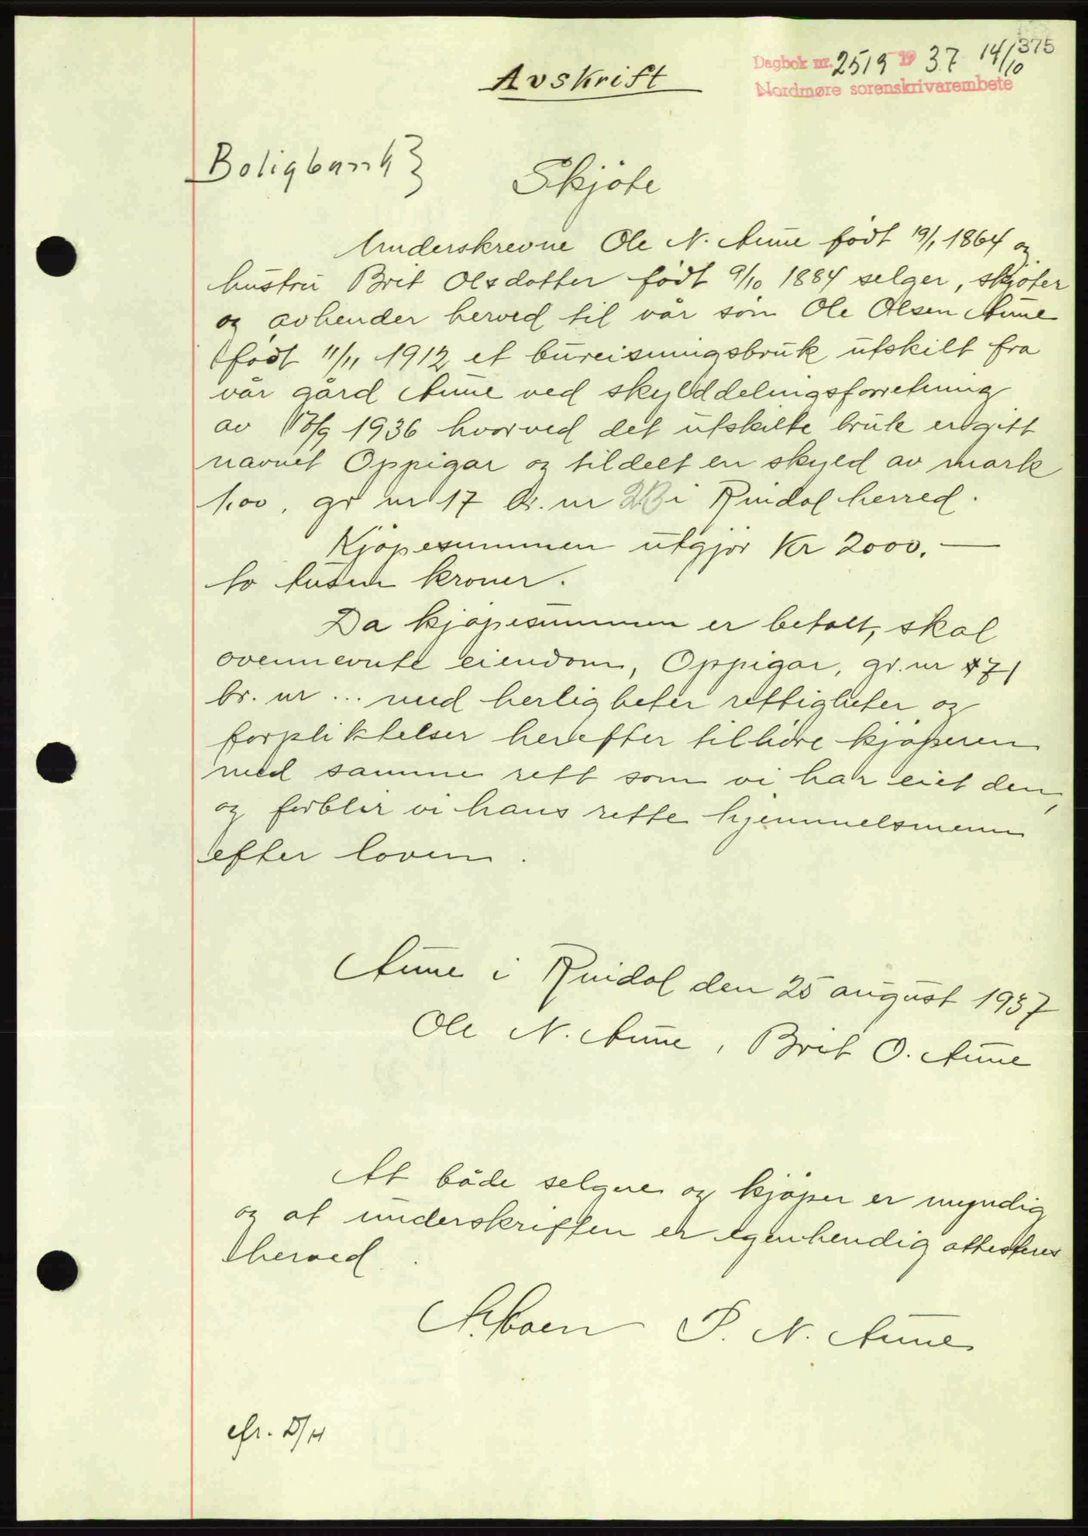 375
Dagbok nr. 2519 19 37 14/10
Nordmøre sorenskrivarembete
Avskrift
Boligbank }
Skjöte
Underskrevne Ole N. Aune födt 19/1 1864 og
hustru Brit Olsdotter födt 9/10 1884 selger, skjöter
og avhender herved til vår sön Ole Olsen Aune
födt 11/11 1912 et bureisningsbruk utskilt fra
vår gård Aune ved skylddelingsforretning
av 17/9 1936 hvorved det utskilte bruk er gitt
navnet Oppigar og tildelt en skyld av mark
1.00, gr nr 17 br. nr i Rindal herred.
Kjöpesummen utgjör Kr 2000.—
to tusen kroner.
Da kjöpesummen er betalt, skal
ovennevnte eiendom, Oppigar, gr. nr 171
br. nr ... med herligheter rettigheter og
forpliktelser herefter tilhöre kjöperen
med samme rett som vi har eiet den,
og forblir vi hans rette hjemmelsmenn
efter loven.
Aune i Rindal den 25 august 1937
Ole N. Aune, Brit O. Aune
At både selgere og kjöper er myndig
og at underskriften er egenhendig attesteres
herved.
P. N. Aune